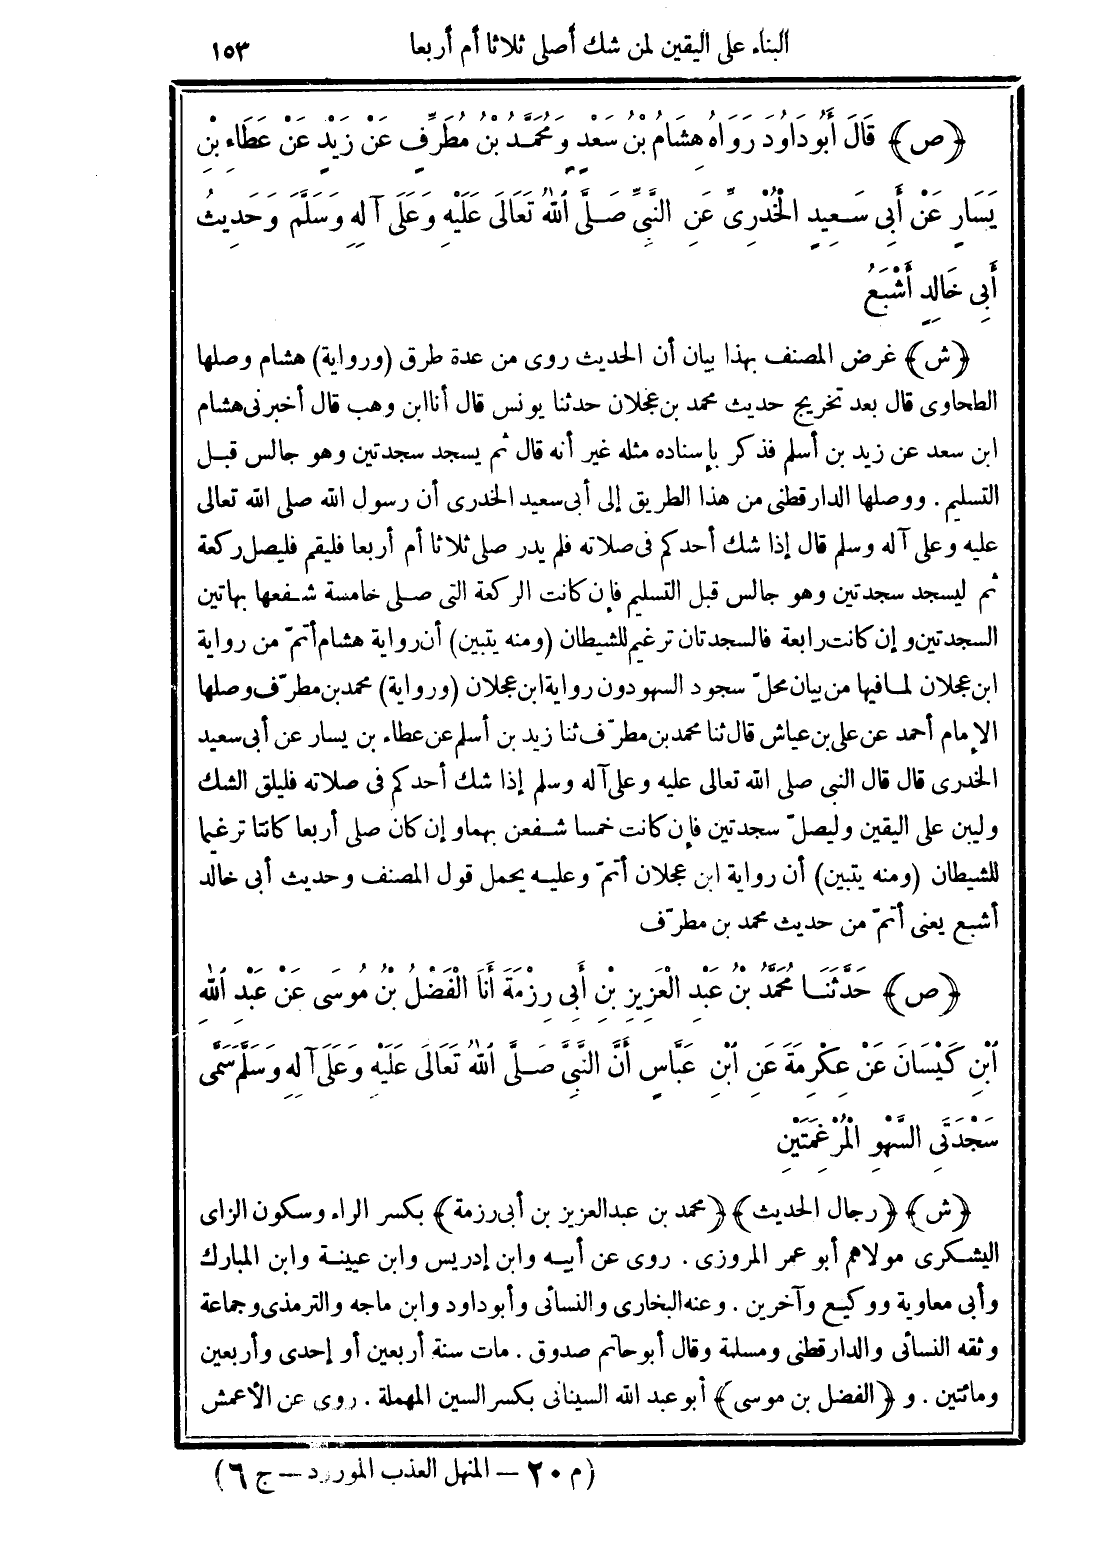 البناء على اليقين لمن شك أصلى ثلاثا أم أربعا ١٥٣
﴿ص﴾ قَالَ أَبُو دَاوُدَ رَوَاهُ هِشَامُ بْنُ سَعْدٍ وَمُحَمَّدُ بْنُ مُطَرِّفٍ عَنْ زَيْدٍ عَنْ عَطَاءِ بْنِ
يَسَارٍ عَنْ أَبِى سَعِيدٍ الْخُدْرِىِّ عَنِ النَّبِىِّ صَلَّى اللهُ تَعَالَى عَلَيْهِ وَعَلَى آلِهِ وَسَلَّمَ وَحَدِيثُ
أَبِى خَالِدٍ أَشْبَعُ
﴿ش﴾ غرض المصنف بهذا بيان أن الحديث روى من عدة طرق (ورواية) هشام وصلها
الطحاوى قال بعد تخريج حديث محمد بن عجلان حدثنا يونس قال أنا ابن وهب قال أخبرنى هشام
ابن سعد عن زيد بن أسلم فذكر بإسناده مثله غير أنه قال ثم يسجد سجدتين وهو جالس قبل
التسليم . ووصلها الدارقطنى من هذا الطريق إلى أبى سعيد الخدرى أن رسول الله صلى الله تعالى
عليه وعلى آله وسلم قال إذا شك أحدكم فى صلاته فلم يدر صلى ثلاثا أم أربعا فليقم فليصل ركعة
ثم ليسجد سجدتين وهو جالس قبل التسليم فإن كانت الركعة التى صلى خامسة شفعها بهاتين
السجدتين وإن كانت رابعة فالسجدتان ترغيم للشيطان (ومنه يتبين) أن رواية هشام أتمّ من رواية
ابن عجلان لما فيها من بيان محلّ سجود السهو دون رواية ابن عجلان (ورواية) محمد بن مطرّف وصلها
الإمام أحمد عن على بن عياش قال ثنا محمد بن مطرّف ثنا زيد بن أسلم عن عطاء بن يسار عن أبى سعيد
الخدرى قال قال النبى صلى الله تعالى عليه وعلى آله وسلم إذا شك أحدكم فى صلاته فليلق الشك
وليبن على اليقين وليصلّ سجدتين فإن كانت خمسا شفعن بهما وإن كان صلى أربعا كانتا ترغيما
للشيطان (ومنه يتبين) أن رواية ابن عجلان أتمّ وعليه يحمل قول المصنف وحديث أبى خالد
أشبع يعنى أتمّ من حديث محمد بن مطرّف
﴿ص﴾ حَدَّثَنَا مُحَمَّدُ بْنُ عَبْدِ الْعَزِيزِ بْنِ أَبِى رِزْمَةَ أَنَا الْفَضْلُ بْنُ مُوسَى عَنْ عَبْدِ اللهِ
ابْنِ كَيْسَانَ عَنْ عِكْرِمَةَ عَنِ ابْنِ عَبَّاسٍ أَنَّ النَّبِىَّ صَلَّى اللهُ تَعَالَى عَلَيْهِ وَعَلَى آلِهِ وَسَلَّمَ سَمَّى
سَجْدَتَىِ السَّهْوِ الْمُرْغِمَتَيْنِ
﴿ش﴾ ﴿رجال الحديث﴾ ﴿محمد بن عبد العزيز بن أبى رزمة﴾ بكسر الراء وسكون الزاى
اليشكرى مولاهم أبو عمر المروزى . روى عن أبيه وابن إدريس وابن عيينة وابن المبارك
وأبى معاوية ووكيع وآخرين . وعنه البخارى والنسائى وأبو داود وابن ماجه والترمذى وجماعة
وثقه النسائى والدارقطنى ومسلمة وقال أبو حاتم صدوق . مات سنة أربعين أو إحدى وأربعين
ومائتين . و ﴿الفضل بن موسى﴾ أبو عبد الله السينانى بكسر السين المهملة . روى عن الأعمش
(م ٢٠ – المنهل العذب المورود – ج ٦)